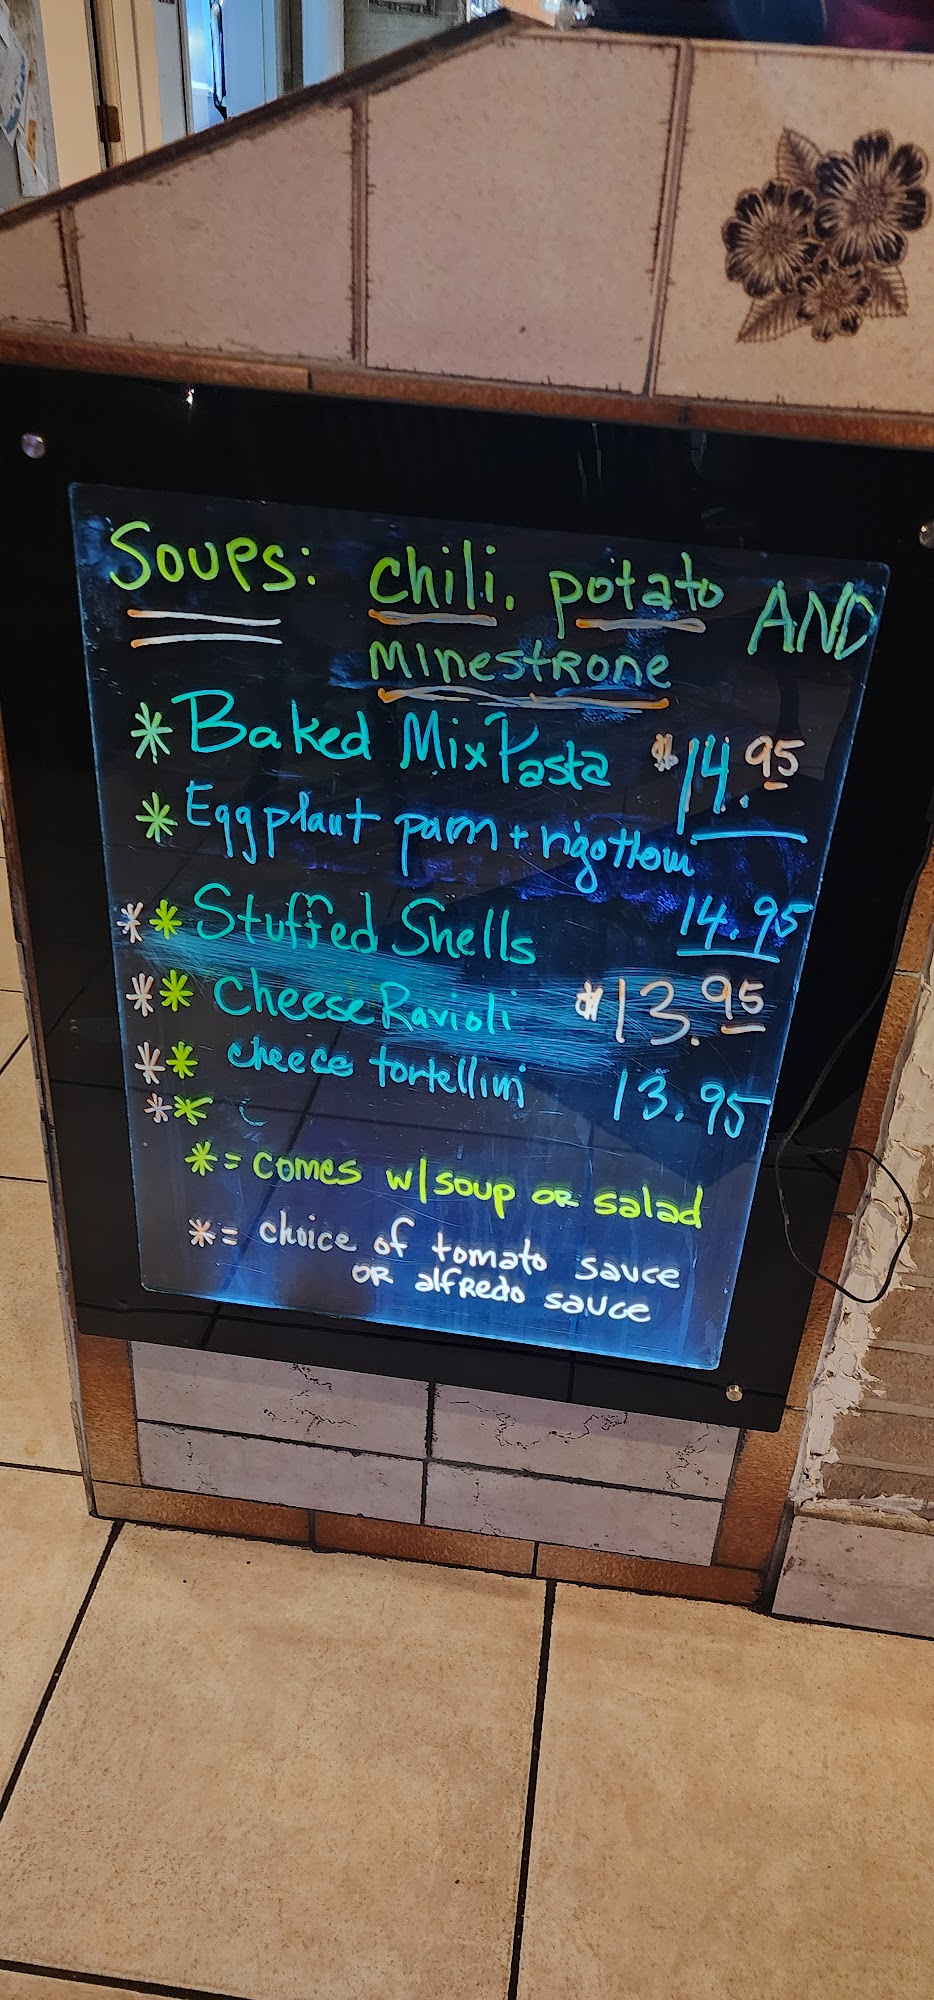 Soups: chili, potato AND
minestrone
* Baked Mix Pasta $14.95
* Eggplant parm + rigottoni
14.95
* * Stuffed Shells
* * Cheese Ravioli $13.95
* * cheece tortellini 13.95
* *
* = comes w/soup or salad
* = choice of tomato sauce
or alfredo sauce